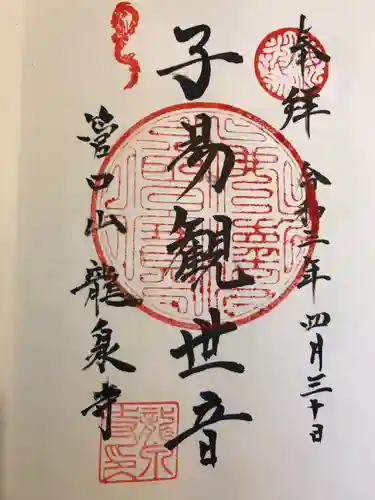 奉拝 令和二年四月三十日
子易観世音
筥口山 龍泉寺
龍泉寺印